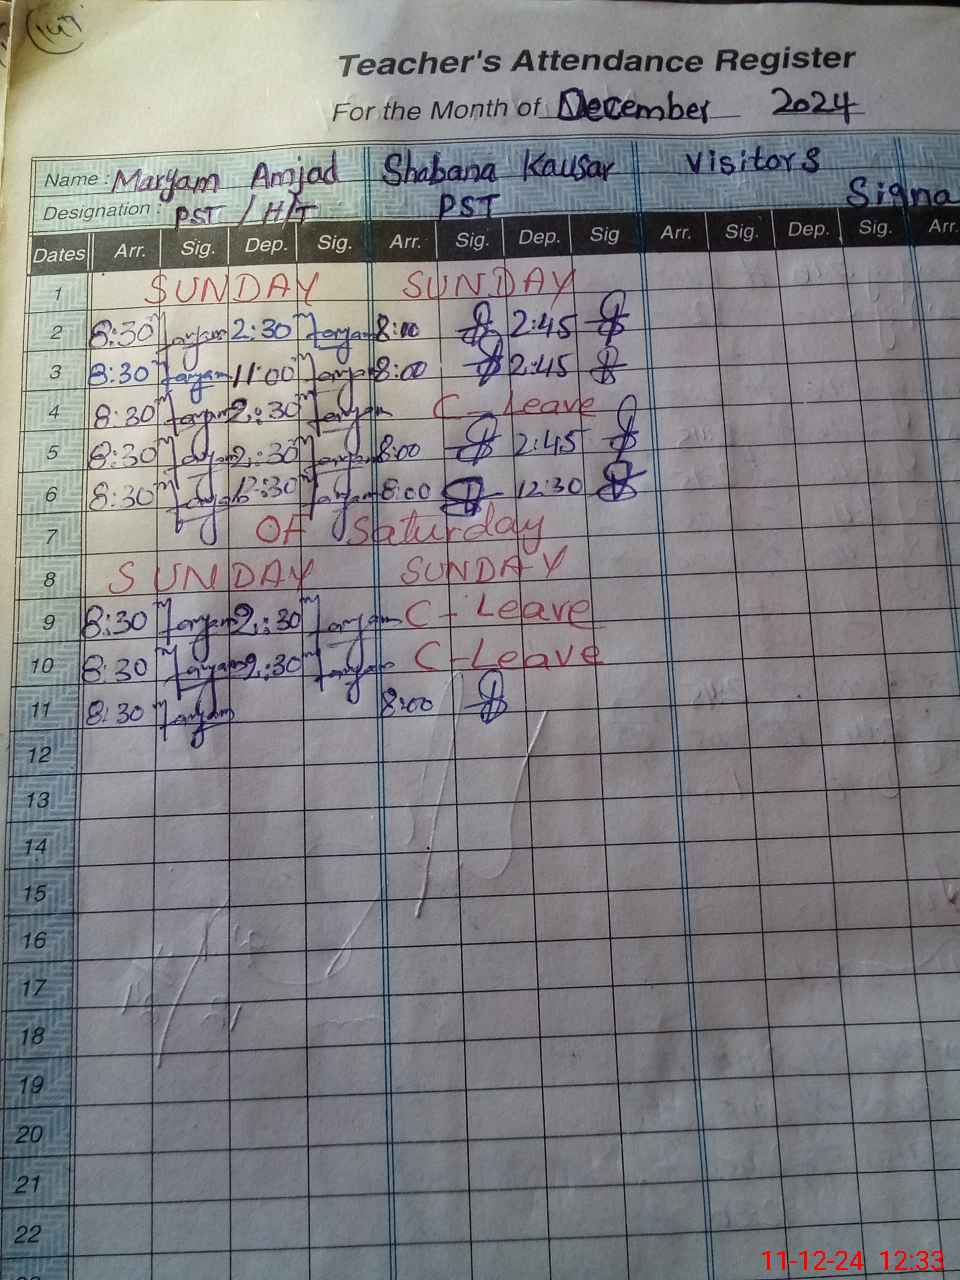 147
Teacher's Attendance Register
For the Month of December 2024
Name : Maryam Amjad Shabana Kausar Visitors
Designation : PST / H/T PST Signa
Dates Arr. Sig. Dep. Sig. Arr. Sig. Dep. Sig Arr. Sig. Dep. Sig. Arr.
1 SUNDAY SUNDAY
2 8:30 Maryam 2:30 Maryam 8:00 2:45
3 8:30 Maryam 11:00 Maryam 8:00 2:45
4 8:30 Maryam 2:30 Maryam C-Leave
5 8:30 Maryam 2:30 Maryam 8:00 2:45
6 8:30 Maryam 12:30 Maryam 8:00 12:30
7 OF Saturday
8 SUNDAY SUNDAY
9 8:30 Maryam 2:30 Maryam C-Leave
10 8:30 Maryam 2:30 Maryam C-Leave
11 8:30 Maryam 8:00
12
13
14
15
16
17
18
19
20
21
22
11-12-24 12:33